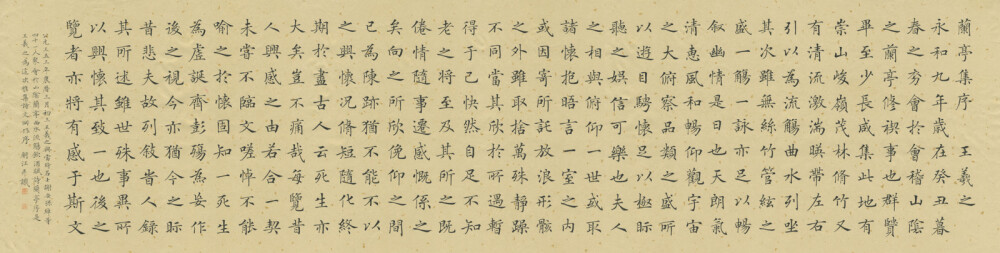 蘭亭集序 王羲之
永和九年歲在癸丑暮
春之初會於會稽山陰
之蘭亭修禊事也群賢
畢至少長咸集此地有
崇山峻嶺茂林脩竹又
有清流激湍暎帶左右
引以為流觴曲水列坐
其次雖無絲竹管絃之
盛一觴一詠亦足以暢
叙幽情是日也天朗氣
清惠風和暢仰觀宇宙
之大俯察品類之盛所
以遊目騁懷足以極眎
聽之娛信可樂也夫人
之相與俯仰一世或取
諸懷抱晤言一室之內
或因寄所託放浪形骸
之外雖取捨萬殊靜躁
不同當其欣於所遇暫
得于己快然自足不知
老之將至及其所之既
倦情隨事遷感慨係之
矣向之所欣俛仰之間
已為陳跡猶不能不以
之興懷況脩短隨化終
期於盡古人云死生亦
大矣豈不痛哉每覽昔
人興感之由若合一契
未嘗不臨文嗟悼不能
喻之於懷固知一死生
為虛誕齊彭殤為妄作
後之視今亦猶今之眎
昔悲夫故列敘時人錄
其所述雖世殊事異所
以興懷其致一也後之
覽者亦將有感于斯文
公元三五三年農曆三月初三王羲之與當時名士謝安孫綽等
四十一人聚會於山陰蘭亭
王羲之為這次雅集詩文所作序